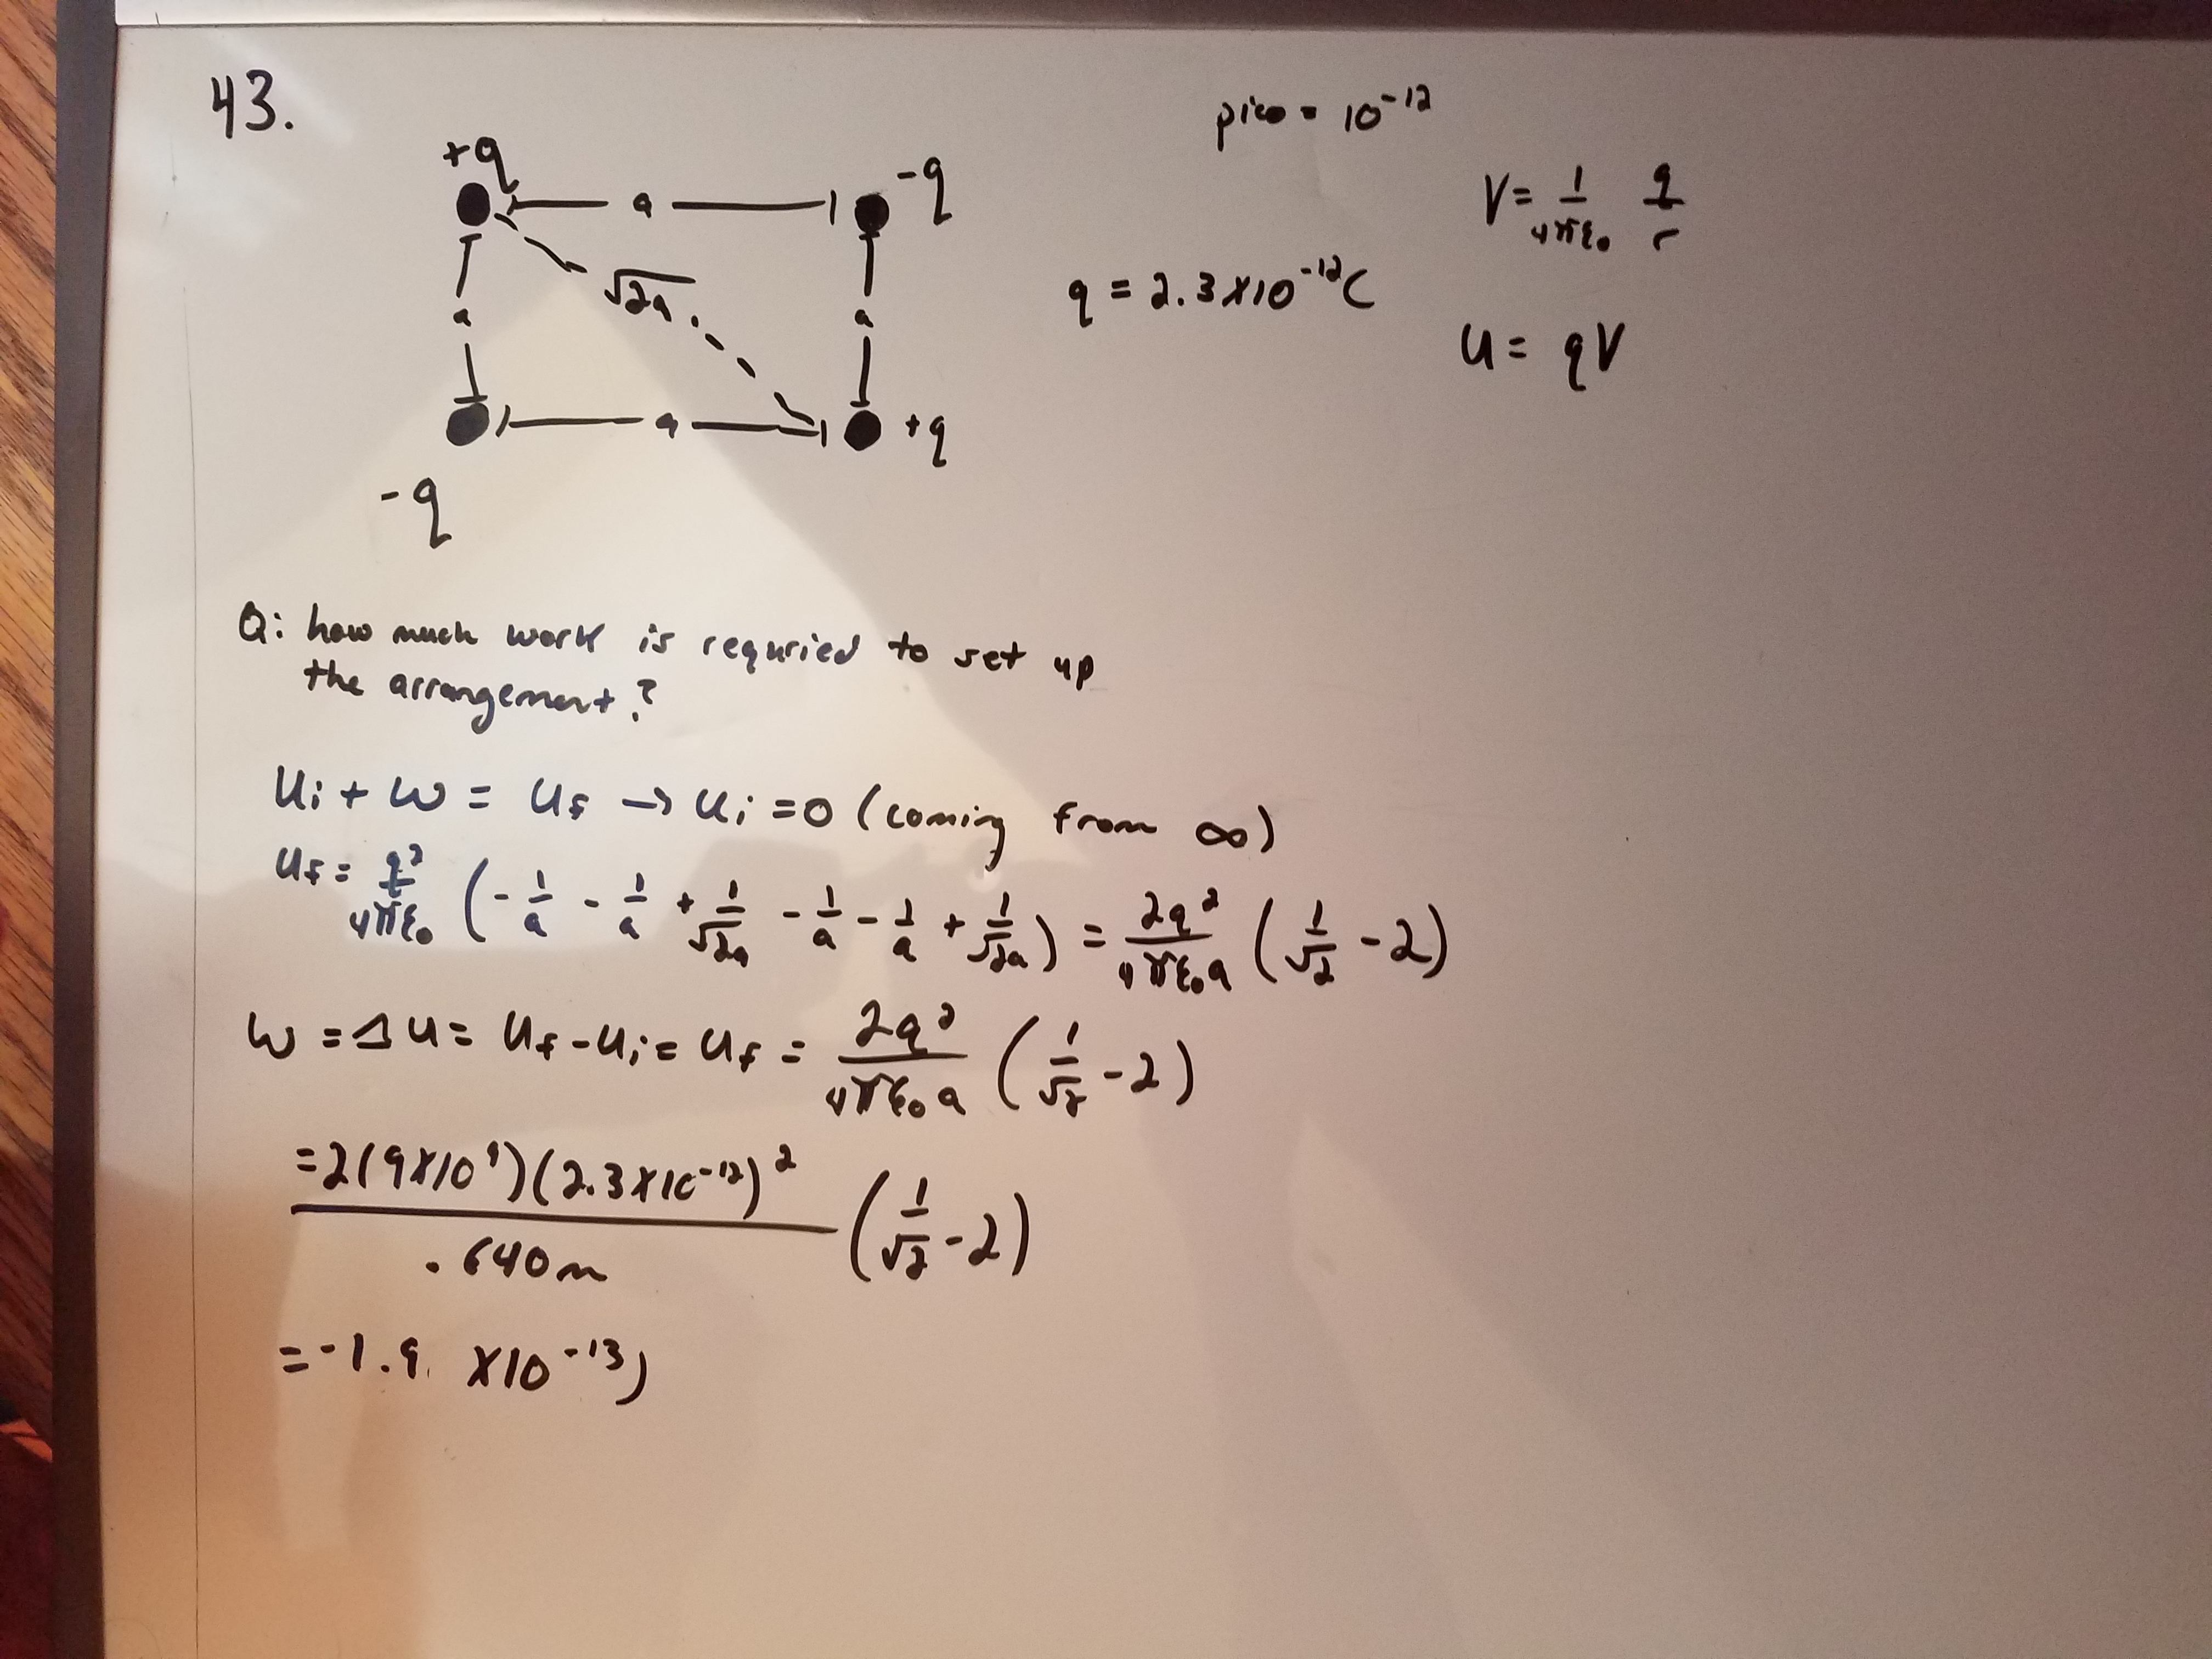 43.
pico = 10⁻¹²
+q — a — -q
a √2a a
-q — a — +q
q = 2.3x10⁻¹²C
V = 1/4πε₀ q/r
U = qV
Q: how much work is requried to set up
the arrangement?
Ui + W = Uf → Ui = 0 (coming from ∞)
Uf = q²/4πε₀ (-1/a - 1/a + 1/√2a - 1/a - 1/a + 1/√2a) = 2q²/4πε₀a (1/√2 - 2)
W = ΔU = Uf - Ui = Uf = 2q²/4πε₀a (1/√2 - 2)
= 2(9x10⁹)(2.3x10⁻¹²)²/.640m (1/√2 - 2)
= -1.9 x10⁻¹³J